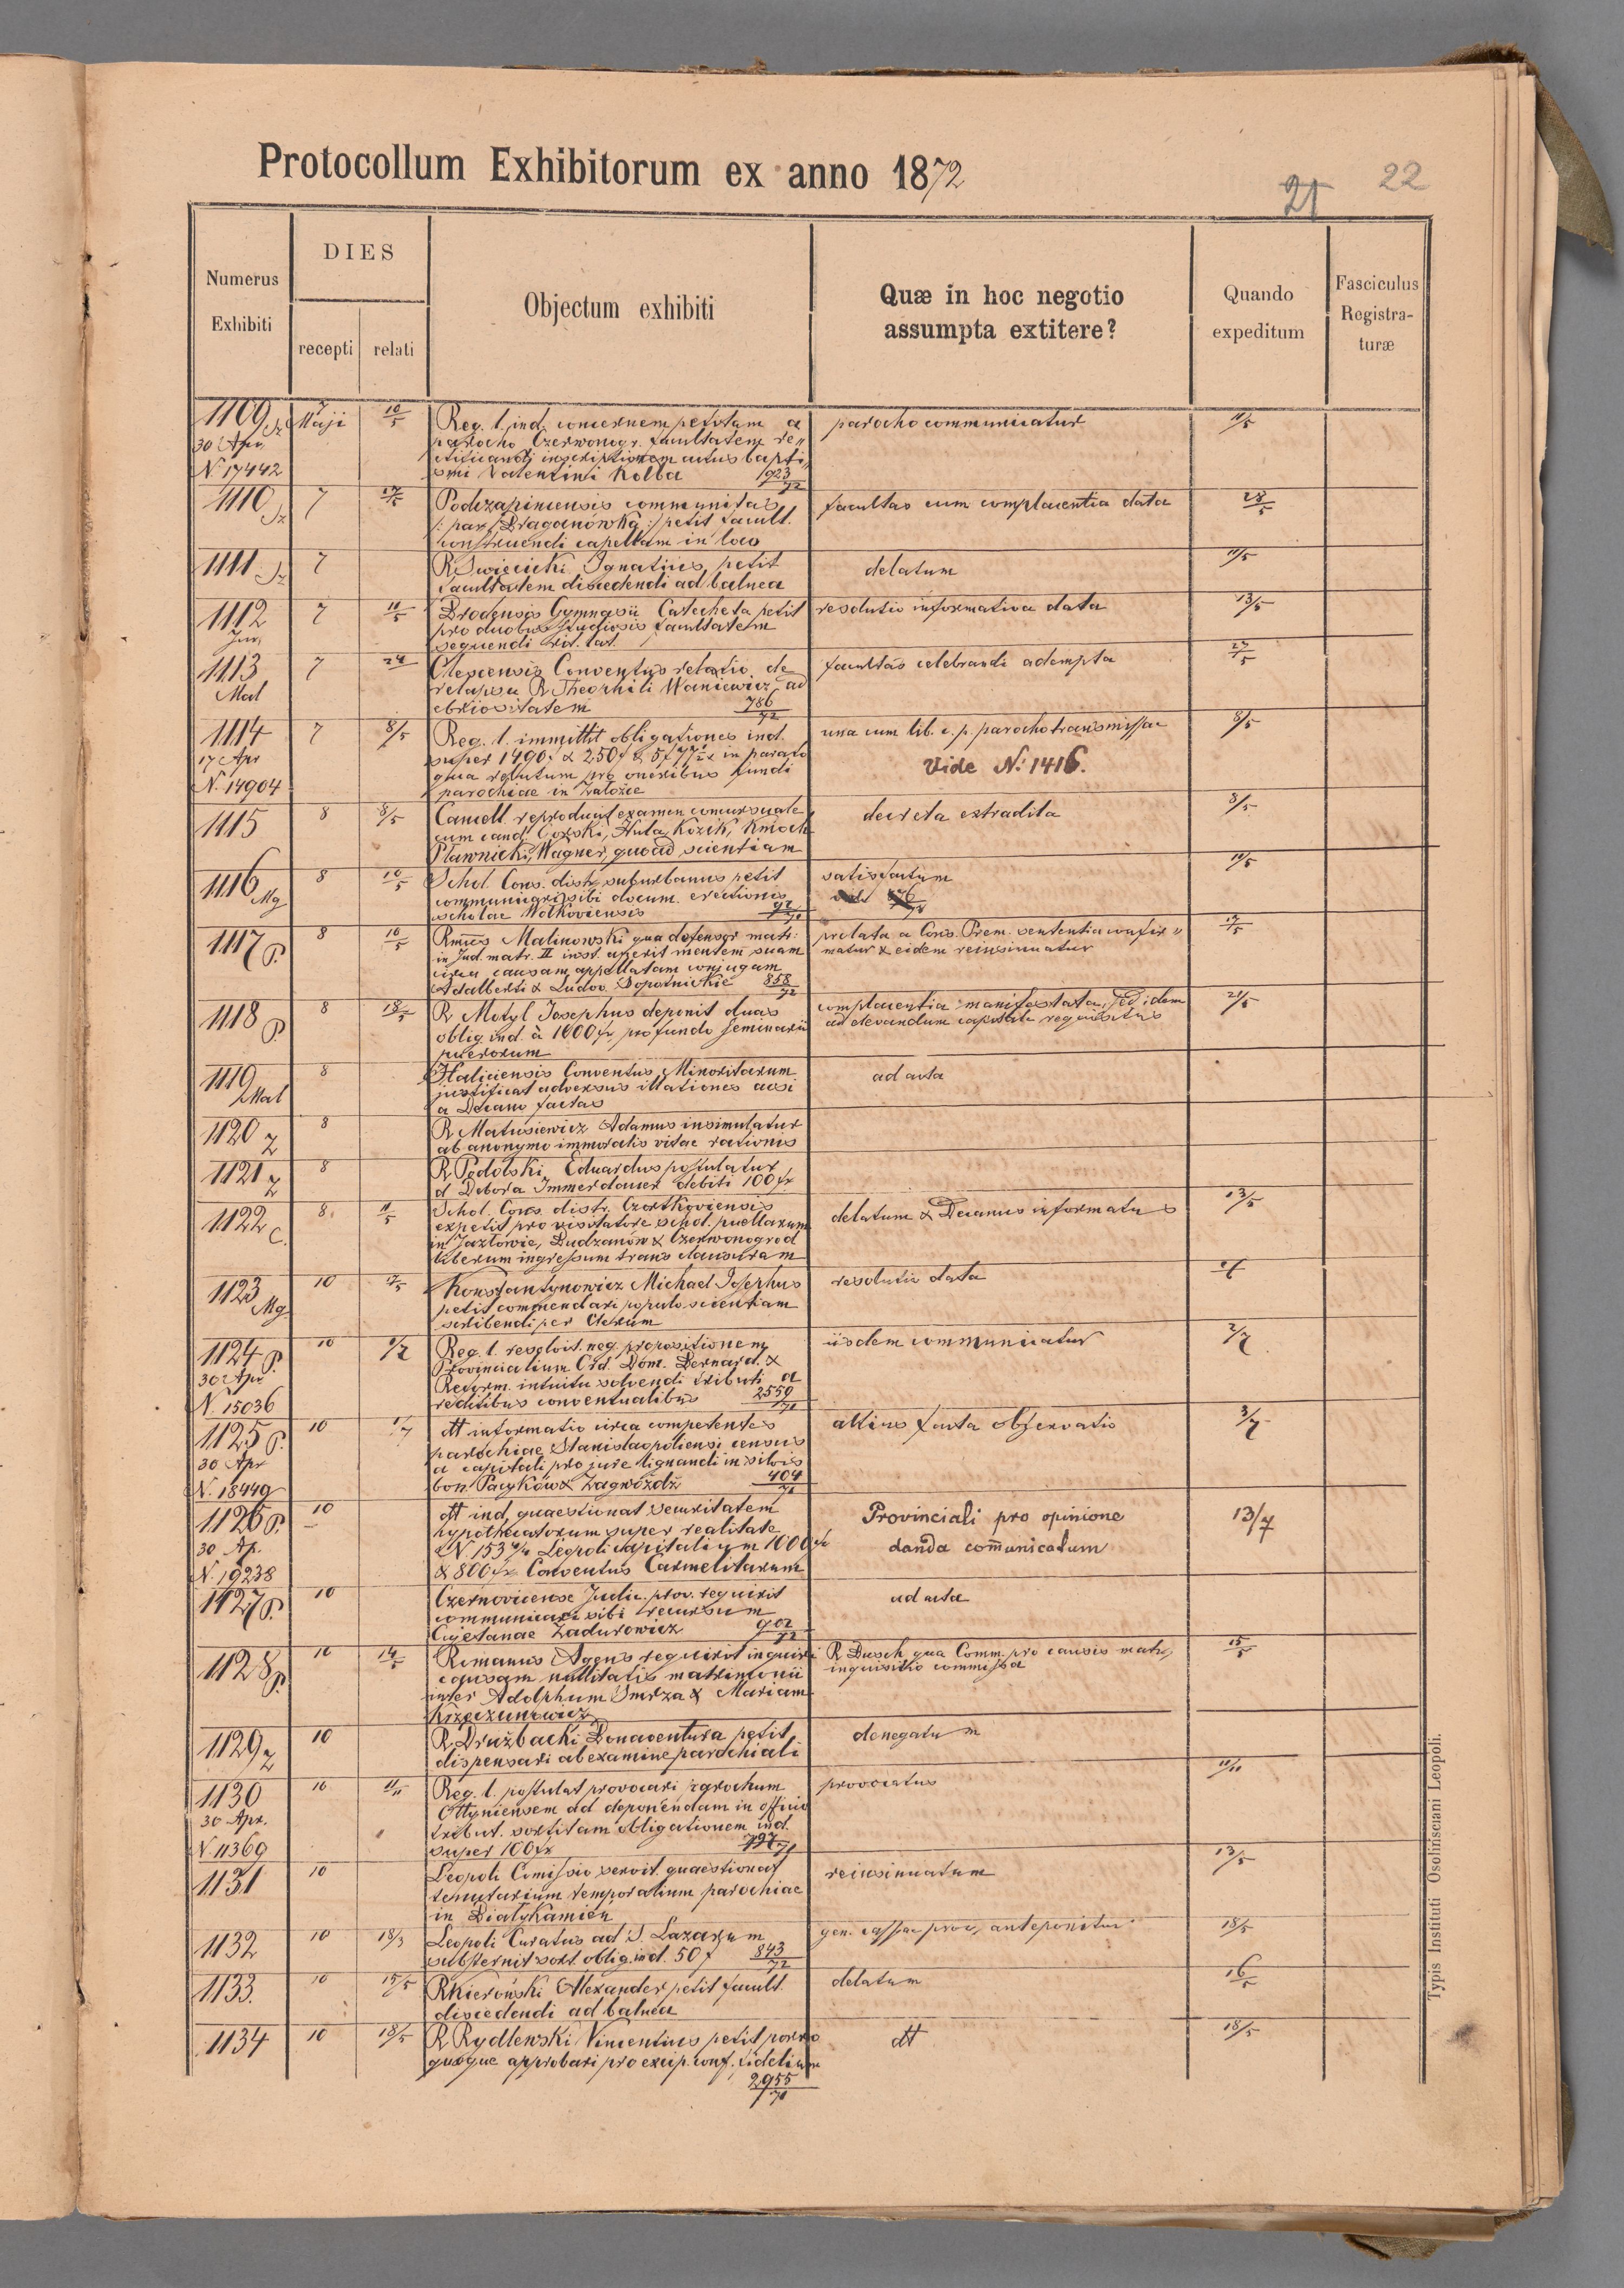 Protocollum Exhibitorum ex anno 1872
21 22
Numerus Exhibiti
DIES
recepti relati
Objectum exhibiti
Quæ in hoc negotio assumpta extitere?
Quando expeditum
Fasciculus Registra-turæ
1109 Sz 7 Maji 10/5 Reg. l. ind. concernem petitam a parocho communicatur 11/5
30 Apr. parocho Czerwonogr. facultatem re„
N 17442 ctificandi inscriptionem actus bapti„
smi Valentini Kolba 1923/72
1110 Sz 7 27/5 Podczapiniensis communitas facultas cum complacentia data 28/5
/: par. Draganówka :/ petit facult.
construendi capellam in loco
1111 Sz 7 R Swiecicki Ignatius petit delatum 11/5
facultatem discedendi ad balnea
1112 7 10/5 Brodensis Gymnasii Catecheta petit resolutio informativa data 13/5
Jur. pro duobus studiosis facultatem
sequendi rit. lat.
1113 7 24 Conventus relatio de facultas celebrandi adempta 27/5
Mal relapsu R Theophili Waniewicz ad
ebriositatem 786/72
1114 7 8/5 Reg. l. immittit obligationes ind. una cum lib. c. p. parocho transmissae 8/5
17 Apr super 1490 f & 250 f & 5 f 77 in parato Vide N: 1416.
N. 14904 qua solutum pro oneribus fundi
parochiae in Założce
1115 8 8/5 Cancell. reproducit examen concursuale decreta extradita 8/5
cum cand. Gorski, Huta, Kozik, Kmoch
Pławnicki, Wagner, quoad scientiam
1116 Mg 8 10/5 Schol. Cons. distr. suburbanus petit satisfactum 10/5
communicari sibi docum. erectionis
scholae Wołkoviensis 92/71
1117 P. 8 10/5 Rmus Malinowski qua defensor matr. prolata a Cons. Prem. sententia confir„ 17/5
in Jud. matr. II inst. aperit mentem suam matur & eidem reinsinuatur
circa causam appellatam conjugum
Adalberti & Ludov. Sopotnickie 858/72
1118 P. 8 18/5 R Motyl Josephus deponit duas complacentia manifestata, sed idem 21/5
oblig. ind. à 1000 fr pro fundo seminarii ad elevandum capitale requisitus
puerorum
1119 Mal 8 Haliciensis Conventus Minoritarum ad acta
justificat adversus illationes acsi
a Decano factas
1120 Z 8 R Matusiewicz Adamus insimulatur
ab anonymo immoralis vitae rationis
1121 Z 8 R Podolski Eduardus postulatur
a Debora Immerdauer debiti 100 fr
1122 C. 8 11/5 Schol. Cons. distr. Czortkoviensis delatum & Decanus informatus 13/5
expetit pro visitatore schol. puellarum
in Jazłowie, Budzanów & Czerwonogrod
liberum ingressum trans clausuram
1123 Mg 10 17/5 Konstantynowicz Michael Josephus resolutio data
petit commendari populo scientiam
scribendi per Clerum
1124 P. 10 1/7 Reg. l. resolvit neg. propositionem iisdem communicatur 2/7
30 Apr Provincialium Ord. Dom. Bernard. &
N. 15036 Reform. intuitu solvendi tributi a
reditibus conventualibus 2559/71
1125 P. 10 1/7 dt informatio circa competentes altius facta observatio 3/7
30 Apr parochiae Stanislaopoliensi census
N. 18449 a capitali pro jure lignandi in silvis
bon. Pacyków & Zagwóźdź 404/71
1126 P. 10 dt ind. quaestionat securitatem Provinciali pro opinione 13/7
30 Ap. hypothecatorum super realitate danda comunicatum
N. 19238 N 153 4/4 Leopoli capitalium 1000 fr
& 800 fr Conventus Carmelitarum
1127 P. 10 Czernoviciense Judic. prov. requirit ad acta
communicari sibi recursum
Cajetanae Zadurowicz 902/72
1128 P. 10 14/5 Romanus Agens requirit inquiri R Dusch qua Comm. pro causis matr. 15/5
causam nullitatis matrimonii inquisitio commissa
inter Adolphum Smrza & Mariam
Krzeczunowicz
1129 Z 10 R Družbacki Bonaventura petit denegatum
dispensari ab examine parochiali
1130 10 11/11 Reg. l. postulat provocari parochum provocatus 11/11
30 Apr. Ottyniensem ad deponendam in officio
N 11369 tribut. sortitam obligationem ind.
super 100 fr 797/71
1131 10 Leopoli Comissio servit. quaestionat reinsinuatum 13/5
tenutarium temporalium parochiae
in Białykamień
1132 10 18/5 Leopoli Curatus ad S. Lazarum gen. cassae prov. anteponitur 18/5
substernit sort. oblig. ind. 50 f 843/72
1133 10 15/5 R Kierowski Alexander petit facult. delatum 16/5
discedendi ad balnea
1134 10 18/5 R Rydlewski Vincentius petit porro dt 18/5
quoque approbari pro excip. conf. fidelium
2955/71
Typis Instituti Ossolinsciani Leopoli.